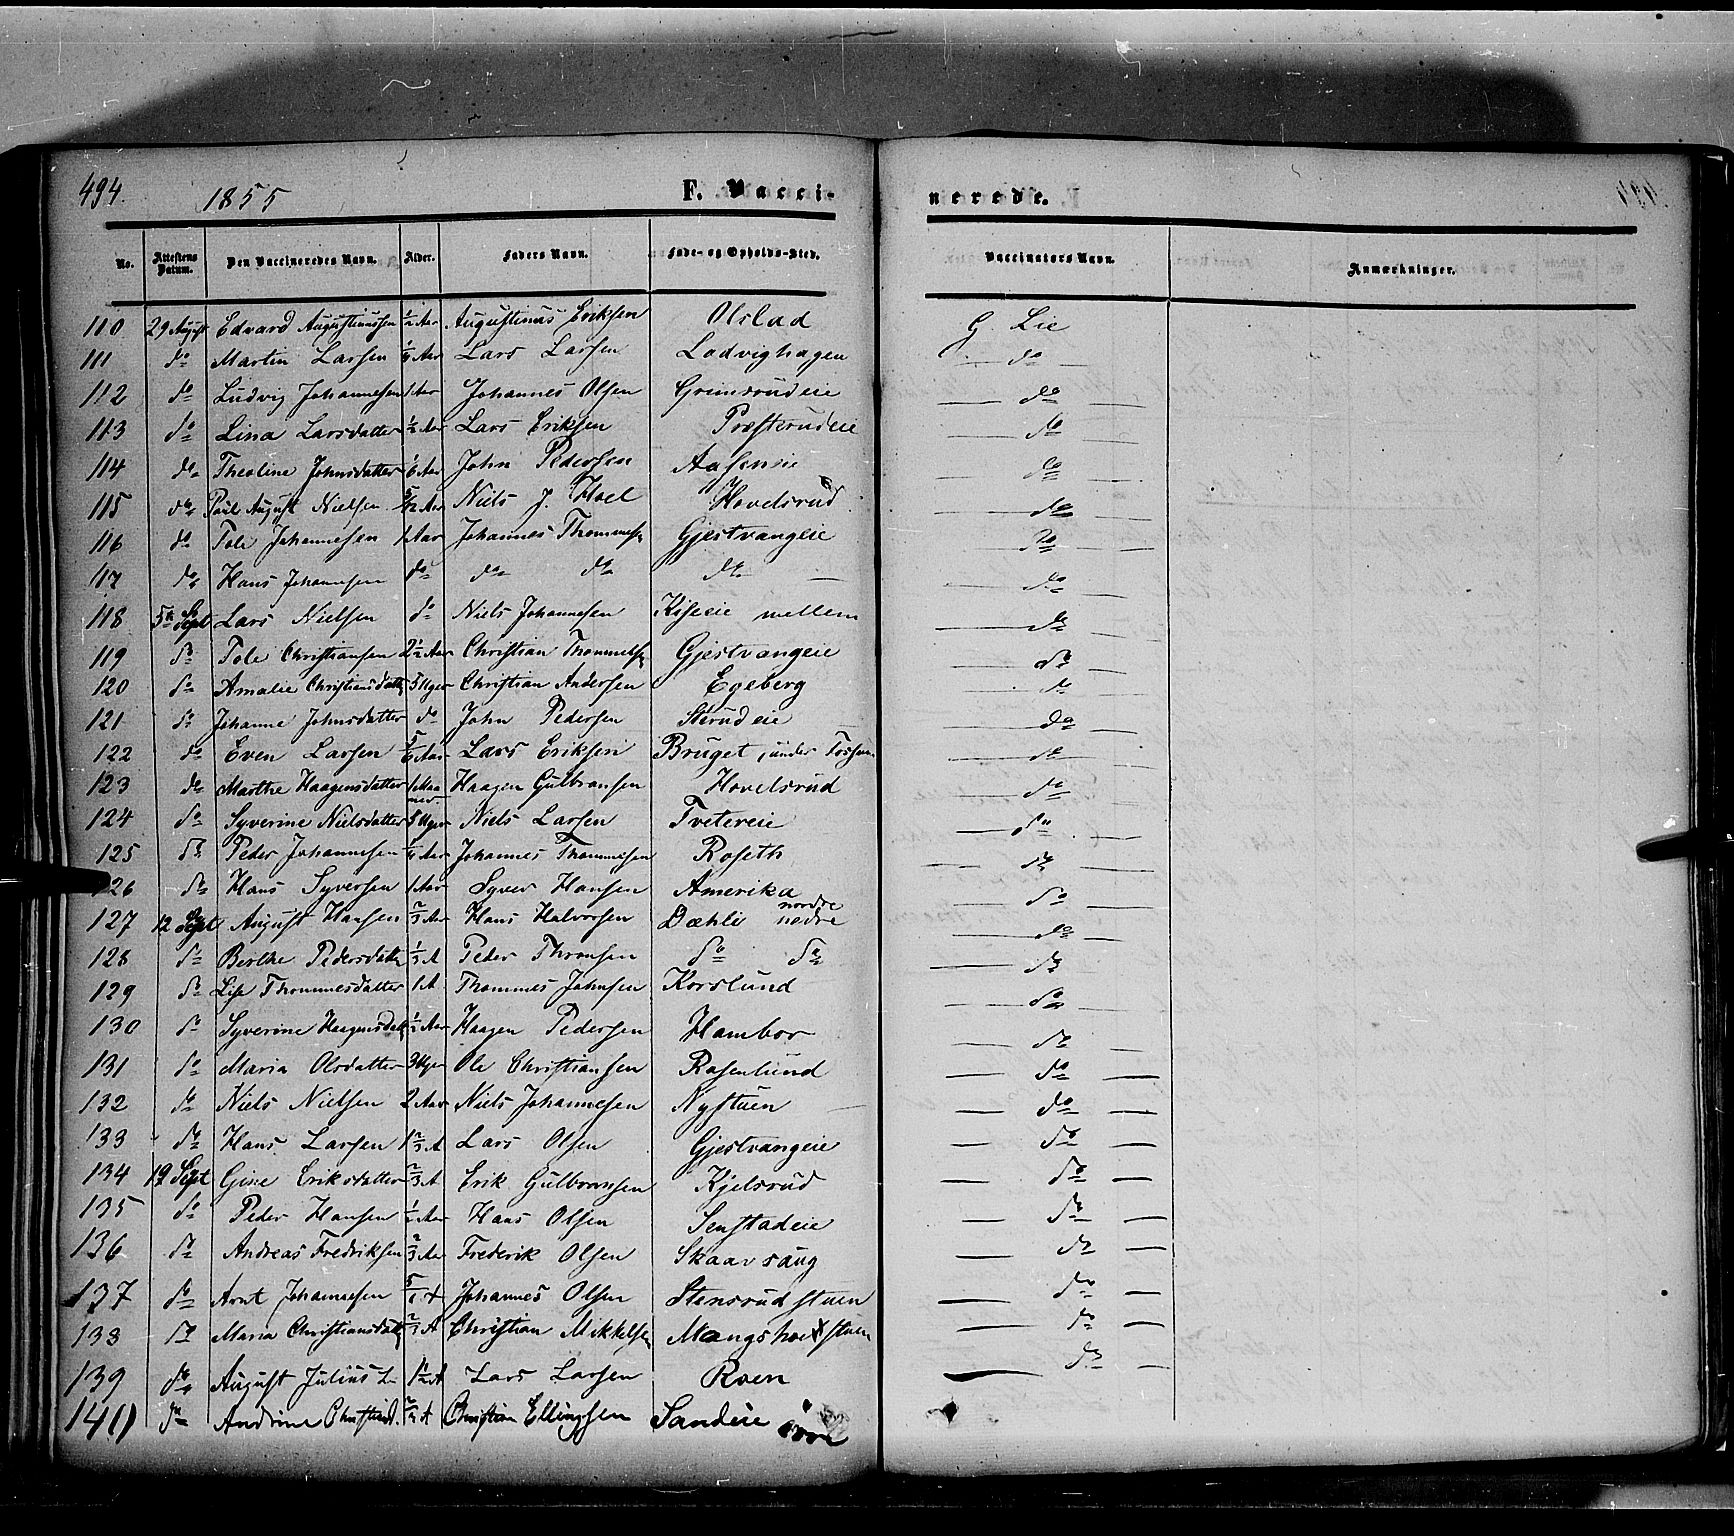 494. 1855 F. Vacci- nerede.
No. Attestens Datum. Den Vaccineredes Navn. Alder. Faders Navn. Føde- og Opholds-Sted. Vaccinators Navn. Anmærkninger.
110 29 August Edvard Augustinussen ½ Aar Augustinus Eriksen Olslad G. Lie
111 do Martin Larsen Aar Lars Larsen Ladvighagen — do
112 do Ludvig Johannesen 1 Aar Johannes Olsen Grimsrudeie — do —
113 do Lina Larsdatter ½ Aar Lars Eriksen Præsterudeie — do
114 do Theoline Johnsdatter 1/6 Aar John Pedersen Aaseneie — do
115 do Paul August Nielsen 5/12 Aar Niels J. Hoel Hovelsrud — do —
116 do Tole Johannesen 1 Aar Johannes Thommesen Gjestvangeie — do
117 do Hans Johannesen do do do do — — do —
118 5te Sept Lars Nielsen do Niels Johannesen Kiseie mellem — do —
119 do Tole Christiansen 2½ Aar Christian Thommesen Gjestvangeie — do —
120 do Amalie Christiansdatt 5 Uger Christian Andersen Egeberg — do —
121 do Johanne Johnsdatter do John Pedersen Sterudeie — do —
122 do Even Larsen 5/6 Aar Lars Eriksen Bruget, under — do —
123 do Marthe Haagensdatter 1 Maaned Haagen Gulbransen Hovelsrud — do —
124 do Syverine Nielsdatter 5 Uger Niels Larsen Tvetereie — do —
125 do Peder Johannesen Aar Johannes Thommesen Roseth — do —
126 do Hans Syversen 1 Aar Syver Hansen Amerika — do —
127 12 Sept August Hansen 2/3 Aar Hans Halvorsen Dæhli nordre nedre — do —
128 do Berthe Pedersdatt 1/3 A Peder Thronsen do do — do
129 do Lise Thommesdatter 1 A Thommes Johnsen Korslund — do —
130 do Syverine Haagensdatt ½ Aar Haagen Pedersen Hambor — do —
131 do Maria Olsdatter 3 Uger Ole Christiansen Rosenlund — do —
132 do Niels Nielsen 2 Aar Niels Johannesen Nystuen — do —
133 do Hans Larsen 1 2/3 A Lars Olsen Gjestvangeie — do —
134 19 Sept Gine Eriksdatter 2/3 A Erik Gulbransen Kjelsrud — do —
135 do Peder Hansen ½ Aar Hans Olsen Senstadeie — do —
136 do Andreas Fredriksen 2/3 Aar Frederik Olsen Skaarsaug — do —
137 do Arnt Johannesen 5/6 A Johannes Olsen Stensrudstuen — do —
138 do Maria Christiansdatt 2/3 A Christian Mikkelsen Mangshoelstuen — do —
139 do August Julius L 1½ A Lars Larsen Roen — do —
140 do Andrine Christiansd. 2/3 A Christian Ellingsen Sandeie øvre